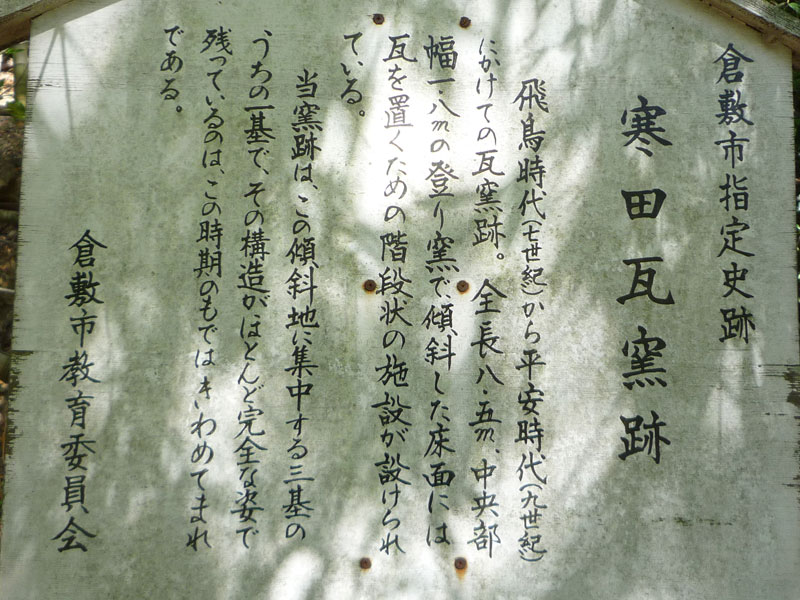 倉敷市指定史跡
寒田瓦窯跡
飛鳥時代(七世紀)から平安時代(九世紀)
にかけての瓦窯跡。全長八・五m、中央部
幅一・八mの登り窯で、傾斜した床面には
瓦を置くための階段状の施設が設けられ
ている。
当窯跡は、この傾斜地に集中する三基の
うちの一基で、その構造がほとんど完全な姿で
残っているのは、この時期のものではきわめてまれ
である。
倉敷市教育委員会